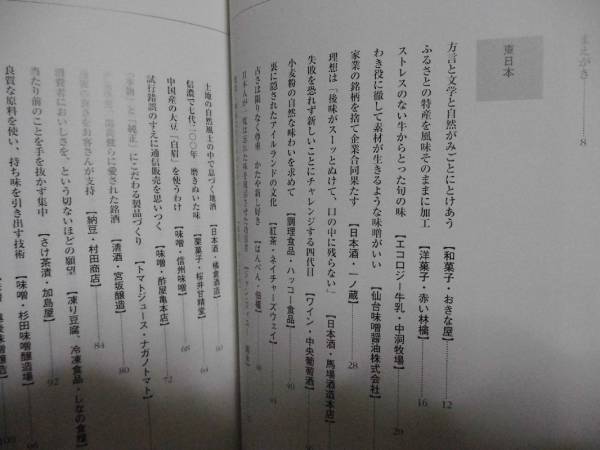 まえがき 8
東日本
方言と文学と自然がみごとにとけあう 【和菓子・おきな屋】 12
ふるさとの特産を風味そのままに加工 【洋菓子・赤い林檎】 16
ストレスのない牛からとった旬の味 【エコロジー牛乳・中洞牧場】 20
わき役に徹して素材が生きるような味噌がいい 【仙台味噌醤油株式会社】
家業の銘柄を捨て企業合同果たす 【日本酒・一ノ蔵】 28
理想は「後味がスーッとぬけて、口の中に残らない」 【日本酒・馬場酒造本店】
失敗を恐れず新しいことにチャレンジする四代目 【ワイン・中央葡萄酒】
小麦粉の自然な味わいを求めて 【調理食品・ハッコー食品】 40
裏に隠されたアイルランドの文化 【紅茶・ネイチャーズウェイ】 44
古さは限りなく尊重 かたや新し好き
土地の自然風土の中で息づく地酒 【日本酒・橘倉酒造】 60
信濃で七代、二〇〇年 磨きぬいた味 【栗菓子・桜井甘精堂】 64
中国産の大豆「白眉」を使うわけ 【味噌・酢屋亀本店】 68
試行錯誤のすえに通信販売を思いつく 【味噌・信州味噌】 72
「本物」と「純正」にこだわる製品づくり 【トマトジュース・ナガノトマト】
に愛された銘酒 【清酒・宮坂醸造】 80
お客さんが支持 【納豆・村田商店】 84
消費者においしさを、という切ないほどの願望 【凍り豆腐、冷凍食品・しなの食糧】
当たり前のことを手を抜かず集中 【さけ茶漬・加島屋】 92
良質な原料を使い、持ち味を引き出す技術 【味噌・杉田味噌醸造場】 96